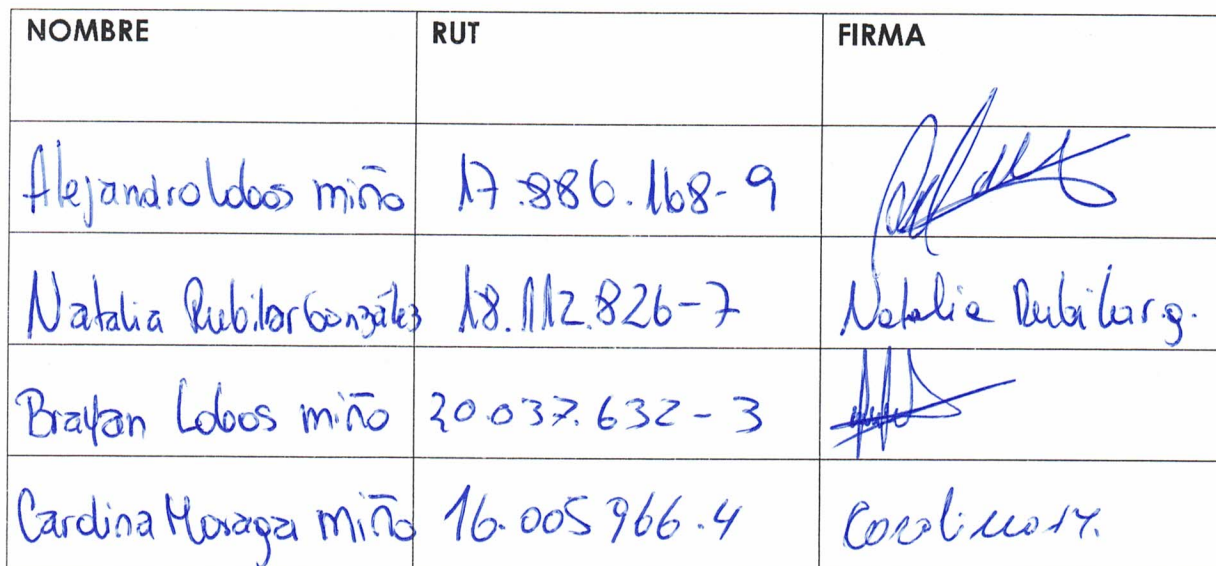 NOMBRE RUT FIRMA
Alejandro Lobos miño 17.886.168-9
Natalia Rubilar González 18.112.826-7 Natalia Rubilar g.
Brayan Lobos miño 20.037.632-3
Carolina Moraga miño 16.005966.4 Carolina M.